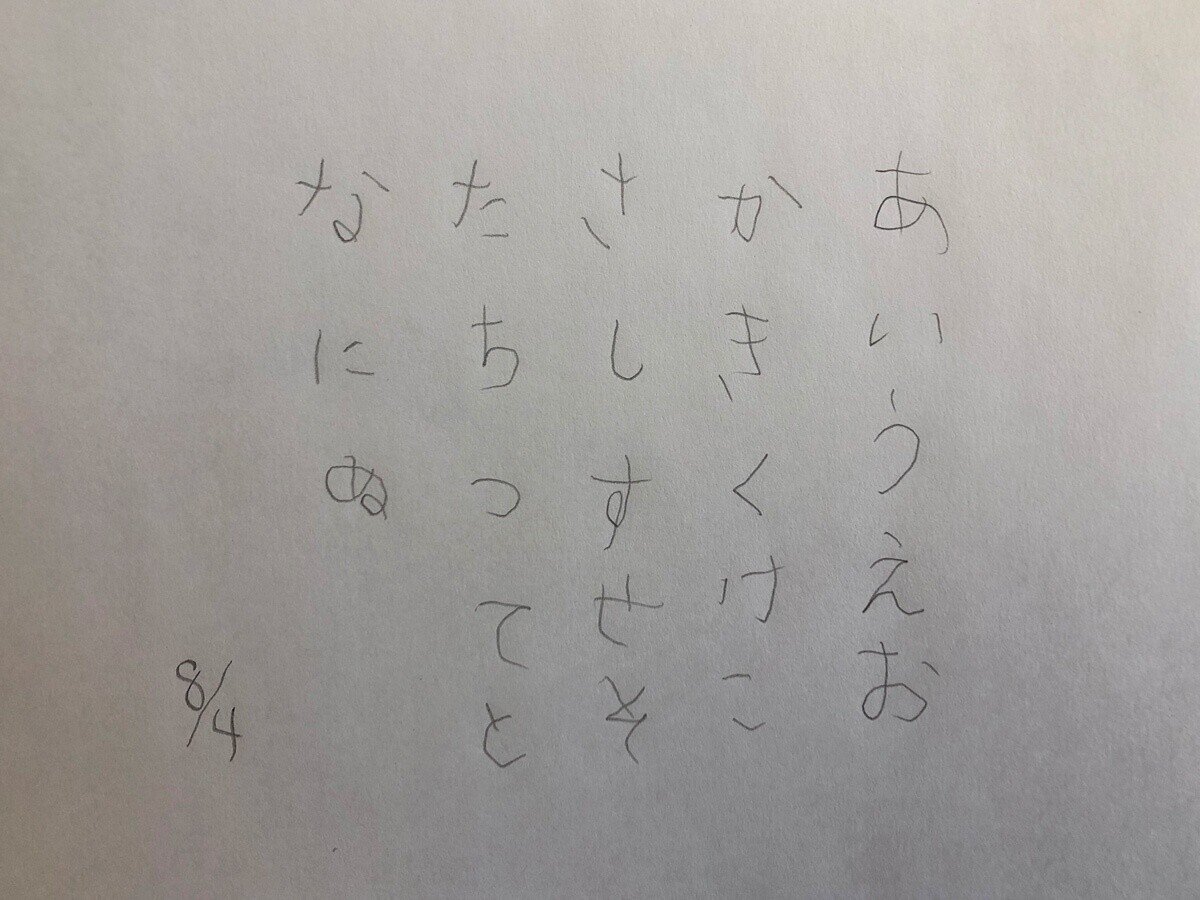 あいうえお
かきくけこ
さしすせそ
たちつてと
なにぬ
8/4